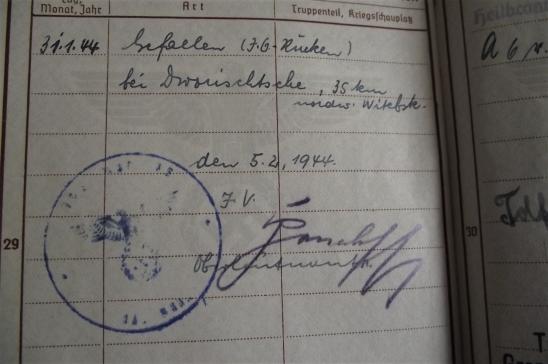 Monat, Jahr Art Truppenteil, Kriegsschauplatz
31.1.44 Gefallen (J.G.-Rücken)
bei Dworischtsche, 35 km
nordw. Witebsk.
den 5.2.1944.
J.V.
Oberleutnant
29
30
Heilbronn
A